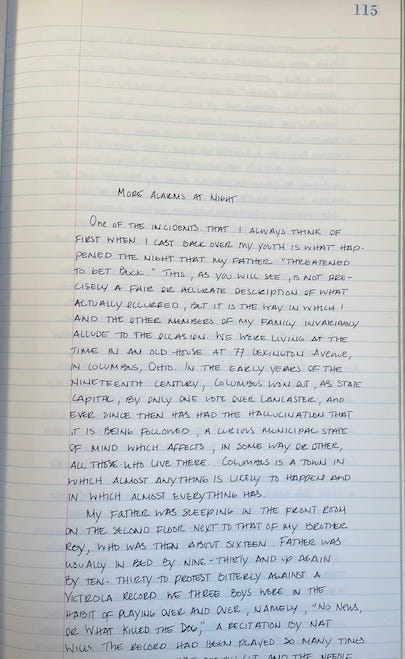 115
MORE ALARMS AT NIGHT
ONE OF THE INCIDENTS THAT I ALWAYS THINK OF
FIRST WHEN I CAST BACK OVER MY YOUTH IS WHAT HAP-
PENED THE NIGHT THAT MY FATHER "THREATENED
TO GET BUCK." THIS, AS YOU WILL SEE, IS NOT PRE-
CISELY A FAIR OR ACCURATE DESCRIPTION OF WHAT
ACTUALLY OCCURRED, BUT IT IS THE WAY IN WHICH I
AND THE OTHER MEMBERS OF MY FAMILY INVARIABLY
ALLUDE TO THE OCCASION. WE WERE LIVING AT THE
TIME IN AN OLD HOUSE AT 77 LEXINGTON AVENUE,
IN COLUMBUS, OHIO. IN THE EARLY YEARS OF THE
NINETEENTH CENTURY, COLUMBUS WON OUT, AS STATE
CAPITAL, BY ONLY ONE VOTE OVER LANCASTER, AND
EVER SINCE THEN HAS HAD THE HALLUCINATION THAT
IT IS BEING FOLLOWED, A CURIOUS MUNICIPAL STATE
OF MIND WHICH AFFECTS, IN SOME WAY OR OTHER,
ALL THOSE WHO LIVE THERE. COLUMBUS IS A TOWN IN
WHICH ALMOST ANYTHING IS LIKELY TO HAPPEN AND
IN WHICH ALMOST EVERYTHING HAS.
MY FATHER WAS SLEEPING IN THE FRONT ROOM
ON THE SECOND FLOOR NEXT TO THAT OF MY BROTHER
ROY, WHO WAS THEN ABOUT SIXTEEN. FATHER WAS
USUALLY IN BED BY NINE-THIRTY AND UP AGAIN
BY TEN-THIRTY TO PROTEST BITTERLY AGAINST A
VICTROLA RECORD WE THREE BOYS WERE IN THE
HABIT OF PLAYING OVER AND OVER, NAMELY, "NO NEWS,
OR WHAT KILLED THE DOG," A RECITATION BY NAT
WILLS. THE RECORD HAD BEEN PLAYED SO MANY TIMES
CUT AND THE NEEDLE